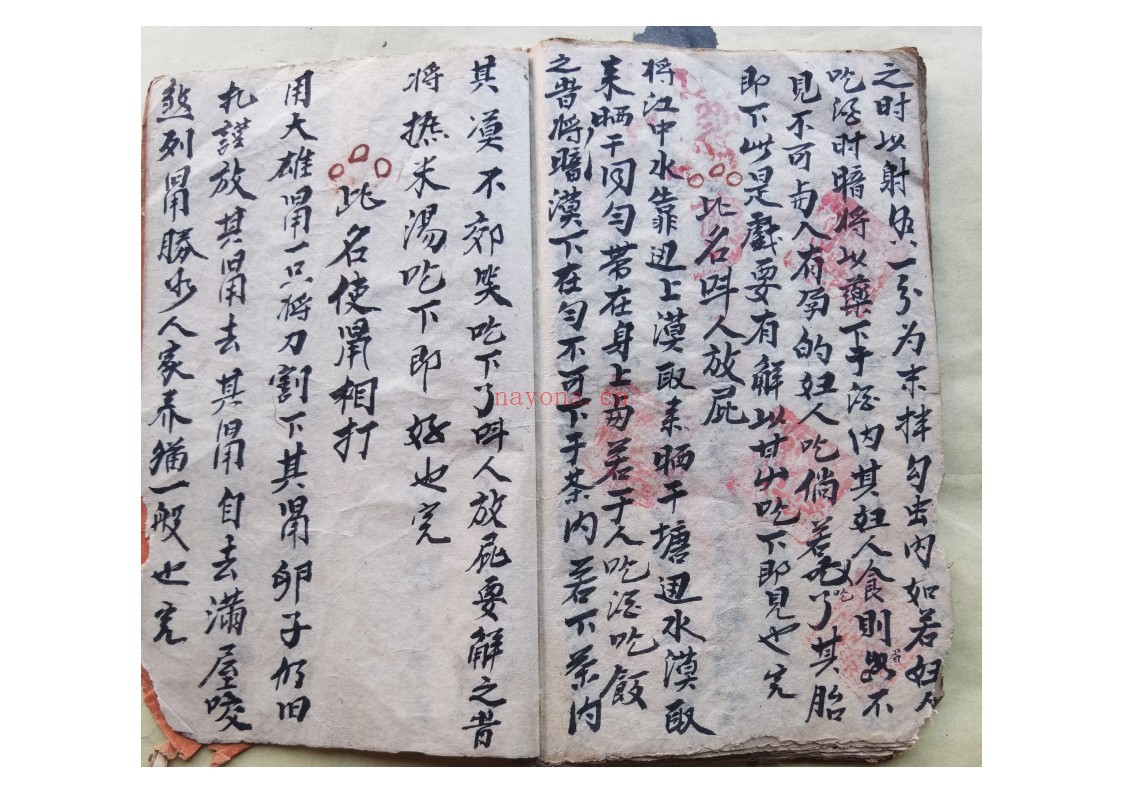 之时以射一分为末拌匀出内如若妇人
吃酒时暗将以藥下于酒内其妇人食則不
見不可与人有孕的妇人吃倘若吃了其胎
即下此是戲要有解以甘草吃下即見也完
此名呌人放屁
将江中水靠边上漠取来晒干塘边水漠取
来晒干同匀带在身上毋若于人吃酒吃飯
之昔将暗漠下在匀不可下于茶内若下茶内
其漠不郊哭吃下了呌人放屁要解之昔
将撫米湯吃下即好也完
此名使鼡相打
用大雄鼡一只将刀割下其鼡卵子仍旧
扎謹放其鼡去其鼡自去满屋咬
煞列鼡勝少人家养猫一般也完
nayona.cn